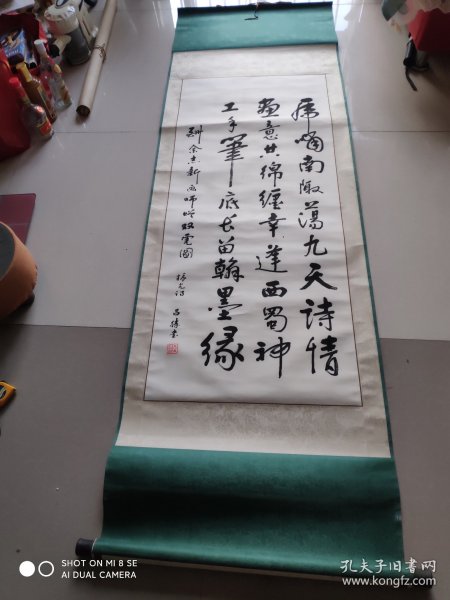 虎啸南陬荡九天诗情
画意共绵缠幸逢西蜀神
工手笔底长留翰墨缘
酬余志新画师赠双虎图
SHOT ON MI 8 SE
AI DUAL CAMERA
孔夫子旧书网
www.kongfz.com